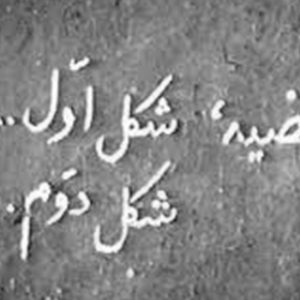 ضیه، شکل اوّل..
شکل دوّم.